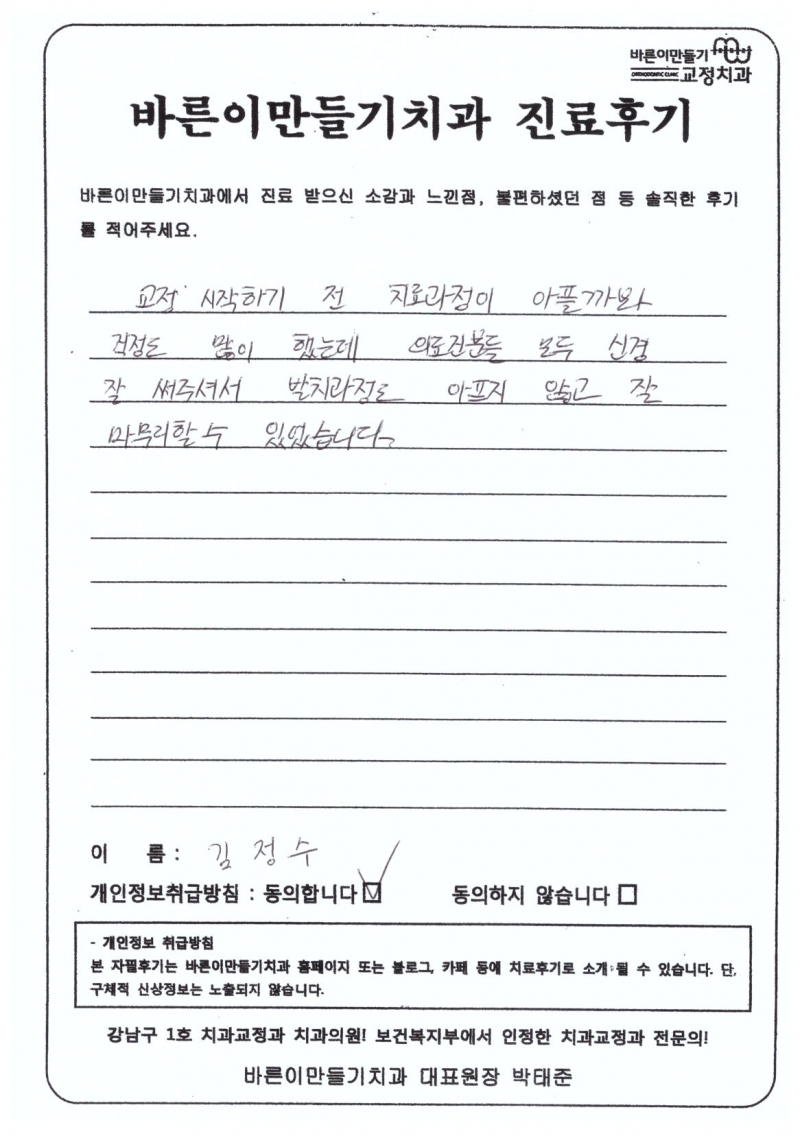 바른이만들기
ORTHODONTIC CLINIC 교정치과
바른이만들기치과 진료후기
바른이만들기치과에서 진료 받으신 소감과 느낀점, 불편하셨던 점 등 솔직한 후기
를 적어주세요.
교정 시작하기 전 치료과정이 아플까봐
걱정도 많이 했는데 의료진분들 모두 신경
잘 써주셔서 발치과정도 아프지 않고 잘
마무리할 수 있었습니다.
이 름 : 김정수
개인정보취급방침 : 동의합니다 ☑ 동의하지 않습니다 ☐
- 개인정보 취급방침
본 자필후기는 바른이만들기치과 홈페이지 또는 블로그, 카페 등에 치료후기로 소개 될 수 있습니다. 단,
구체적 신상정보는 노출되지 않습니다.
강남구 1호 치과교정과 치과의원! 보건복지부에서 인정한 치과교정과 전문의!
바른이만들기치과 대표원장 박태준